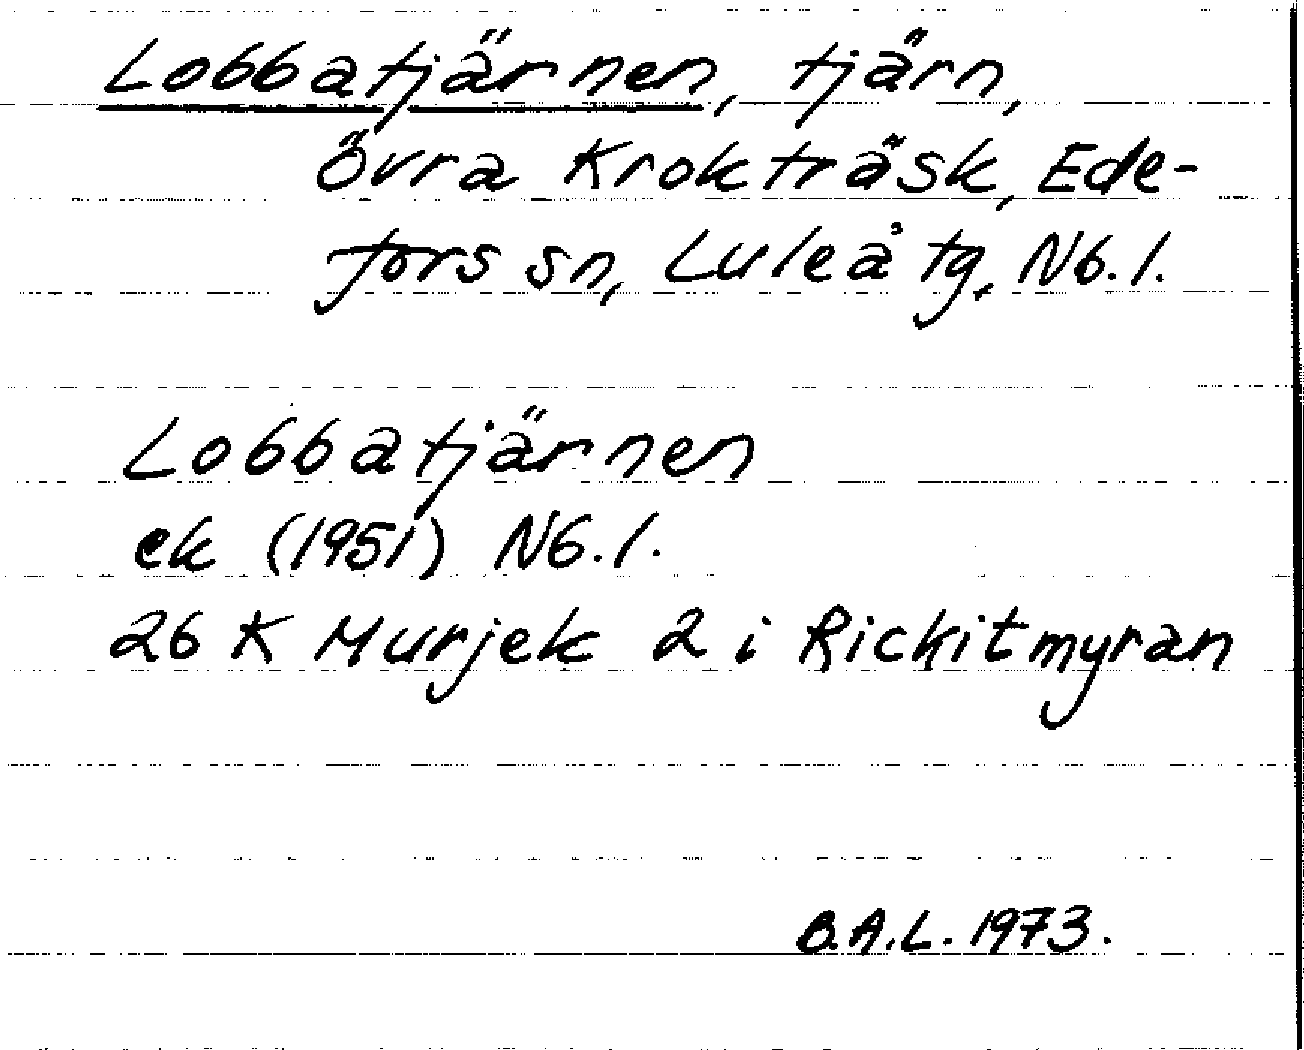 Lobbatjärnen, tjärn,
Övra Krokträsk, Ede-
fors sn, Luleå tg, Nb. l.
Lobbatjärnen
ek (1951) Nb. l.
26 K Murjek 2 i Rickitmyran
B.A.L. 1973.